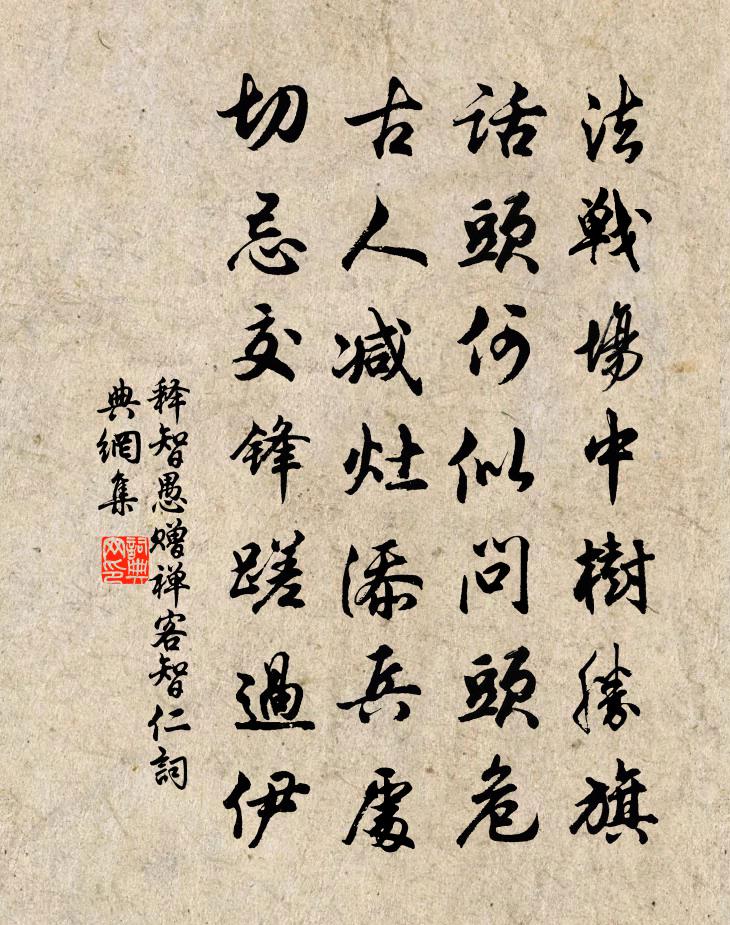 法戰場中樹勝旗
話頭何似問頭危
古人減灶添兵處
切忌交鋒蹉過伊
释智愚赠禅客智仁詞
典網集
詞典网印